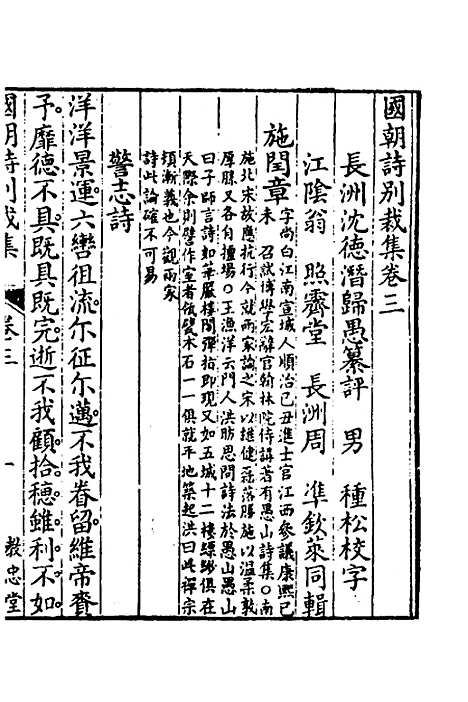 國朝詩別裁集卷三
長洲沈德潛歸愚纂評 男 種松校字
江陰翁 照霽堂 長洲周 準欽萊同輯
施閏章
字尚白江南宣城人順治己丑進士官江西參議康熙己
未 召試博學宏辭官翰林院侍講著有愚山詩集○南
施北宋故應抗行今就兩家論之宋以雄健磊落勝施以溫柔敦
厚勝又各自擅場○王漁洋云門人洪昉思問詩法於愚山愚山
曰子師言詩如華嚴樓閣彈指即現又如五城十二樓縹緲俱在
天際余則譬作室者瓴甓木石一一俱就平地築起洪曰此禪宗
頓漸義也今觀兩家
詩此論確不可易
警志詩
洋洋景運六轡徂流尔征尔邁不我眷留維帝賚
予靡德不具既具既完逝不我顧拾穗雖利不如
國朝詩別裁集 卷三 一 教忠堂